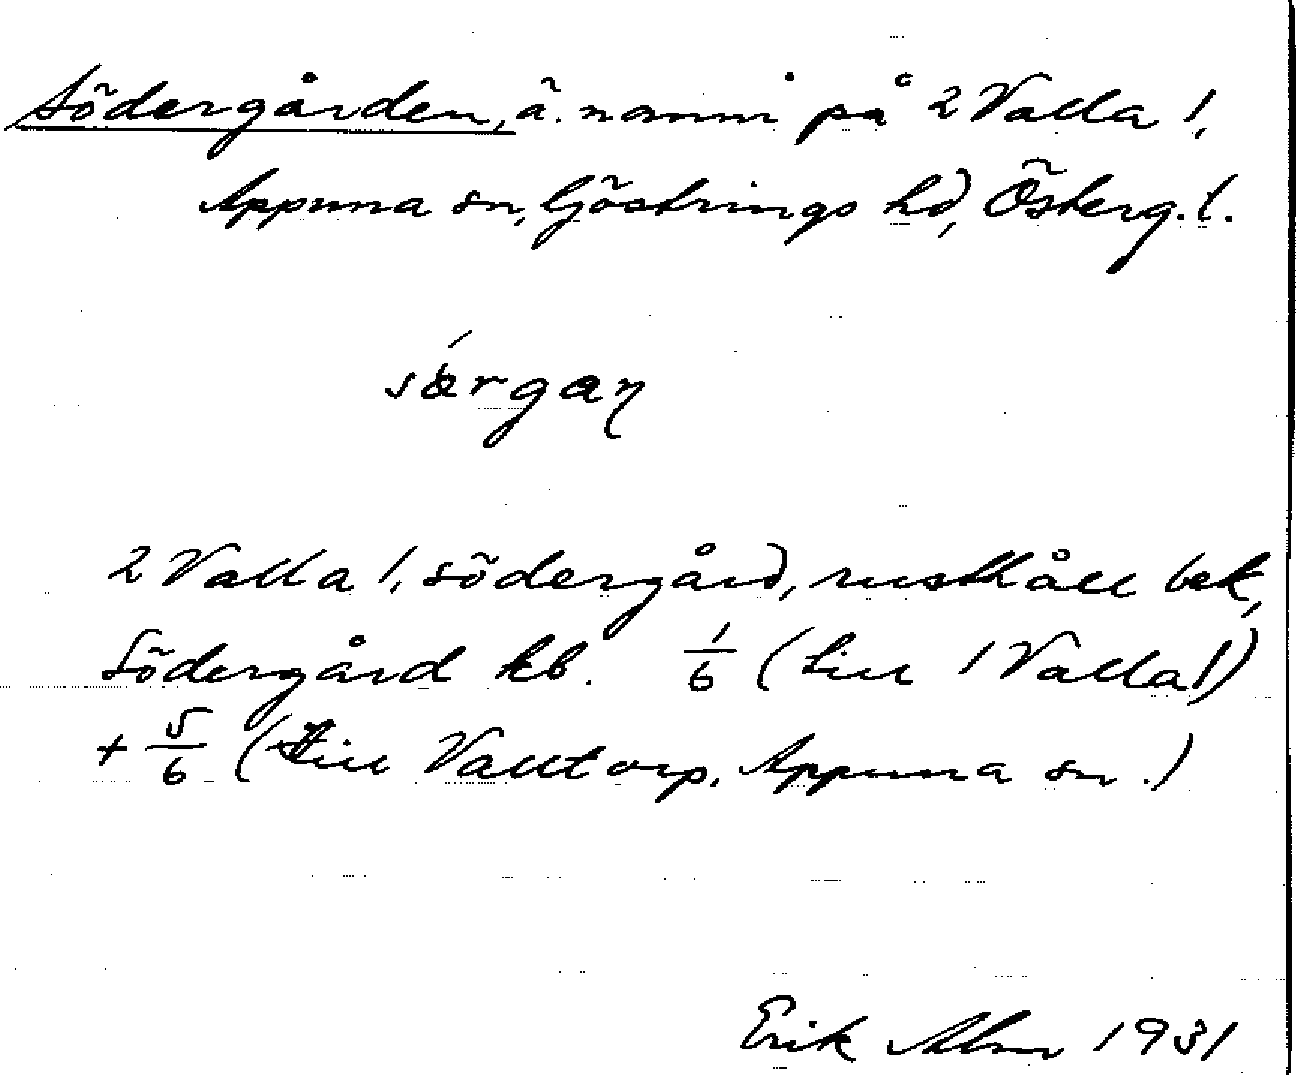 Södergården, ä. namn på 2 Valla 1,
Appuna sn, Göstrings hd, Österg. l.
særgaɳ
2 Valla 1, södergård, rusthåll bek,
Södergård kb. 1/6 (till 1 Valla 1)
+ 5/6 (till Valltorp, Appuna sn.)
Erik Alm 1931